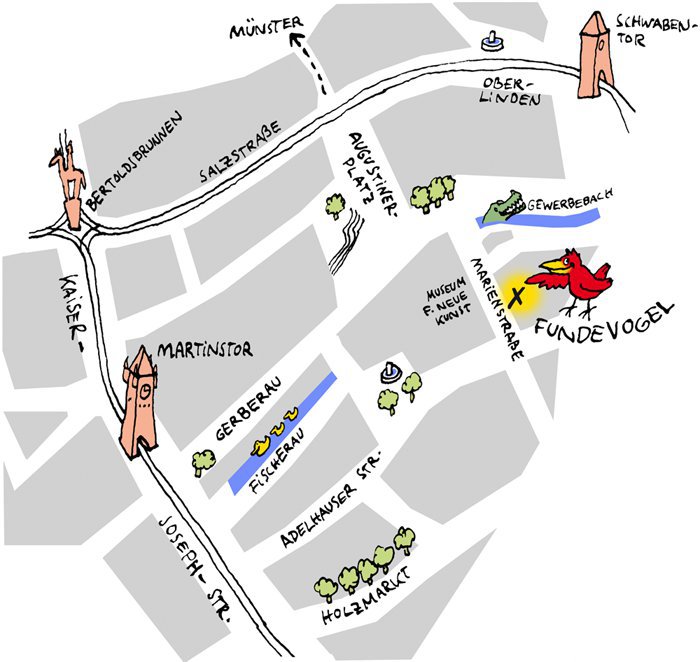 MÜNSTER
SCHWABEN-
TOR
OBER-
LINDEN
BERTOLDSBRUNNEN
SALZSTRAßE
AUGUSTINER-
PLATZ
GEWERBEBACH
KAISER-
MARIENSTRAßE
MUSEUM
F. NEUE
KUNST
X
FUNDEVOGEL
MARTINSTOR
GERBERAU
FISCHERAU
ADELHAUSER STR.
JOSEPH-
STR.
HOLZMARKT